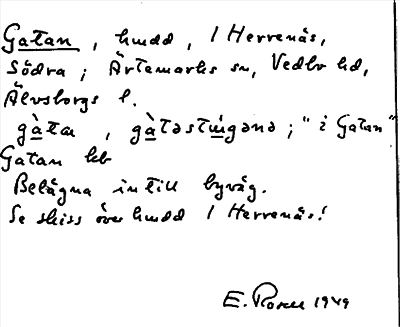 Gatan, hmdd, 1 Herrenäs,
Södra; Ärtemarks sn, Vedbo hd,
Älvsborgs l.
gàta, gàtəstm̀gənə; "i Gatan"
Gatan kb
Belägna intill byväg.
Se skiss över hmdd 1 Herrenäs!
E. Rosell 1949